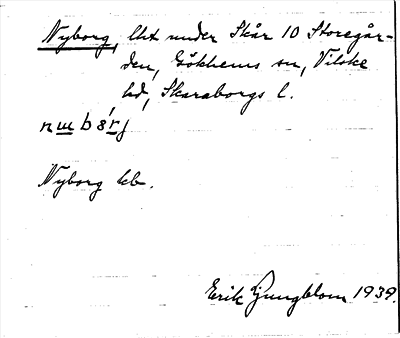 Nyborg, lht under Skår 10 Storegår-
den, Gökhems sn, Vilske
hd, Skaraborgs l.
Nyborg kb.
Erik Ljungblom 1939.